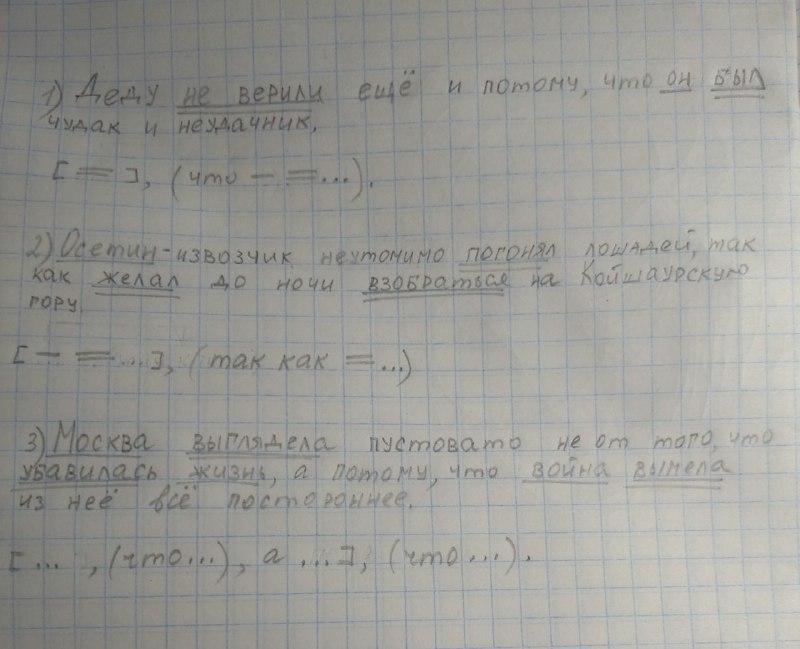 1) Деду не верили ещё и потому, что он был
чудак и неудачник.
[ = ], (что – =...).
2) Осетин-извозчик неутомимо погонял лошадей, так
как желал до ночи взобраться на Койшаурскую
гору.
[ – = ...], (так как = ...)
3) Москва выглядела пустовато не от того, что
убавилась жизнь, а потому, что война вымела
из неё всё постороннее.
[ ... , (что...), а ...], (что ...).